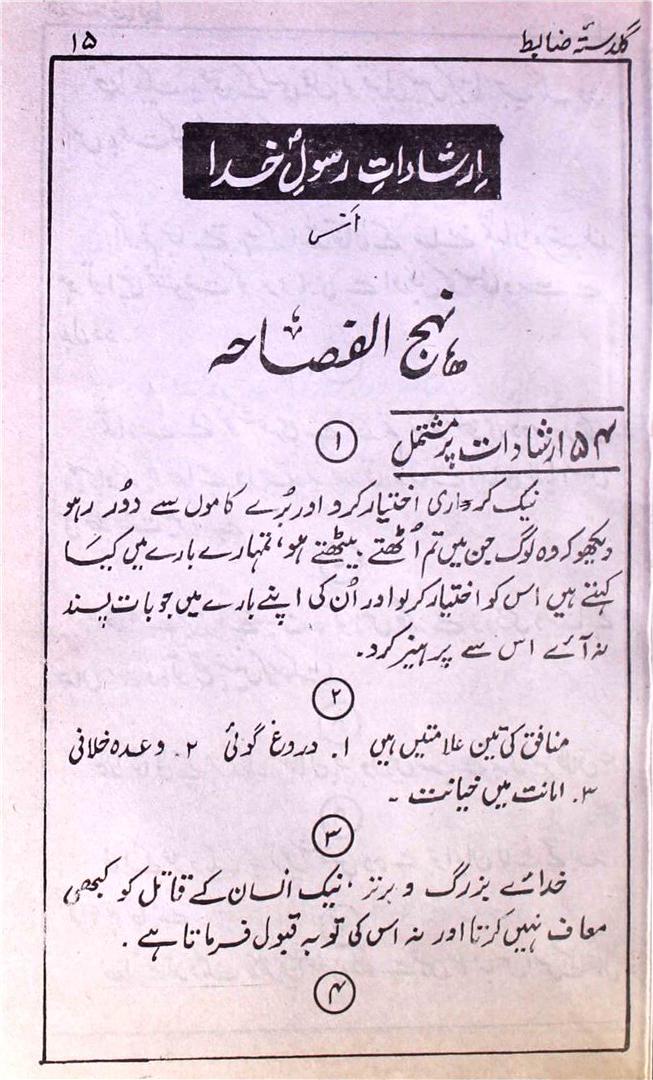 گلدستۂ ضابط ۱۵
اِرشاداتِ رسولِؐ خدا
اَنس
نہج الفصاحہ
۵۴ ارشادات پر مشتمل
۱
نیک کرداری اختیار کرو اور بُرے کاموں سے دُور رہو
دیکھو کہ وہ لوگ جن میں تم اُٹھتے بیٹھتے ہو، تمہارے بارے میں کیا
کہتے ہیں اس کو اختیار کرلو اور اُن کی اپنے بارے میں جو بات پسند
نہ آئے اس سے پرہیز کرو۔
۲
منافق کی تین علامتیں ہیں ۱. دروغ گوئی ۲. وعدہ خلافی
۳. امانت میں خیانت ۔
۳
خدائے بزرگ و برتر ، نیک انسان کے قاتل کو کبھی
معاف نہیں کرتا اور نہ اس کی توبہ قبول فرماتا ہے .
۴